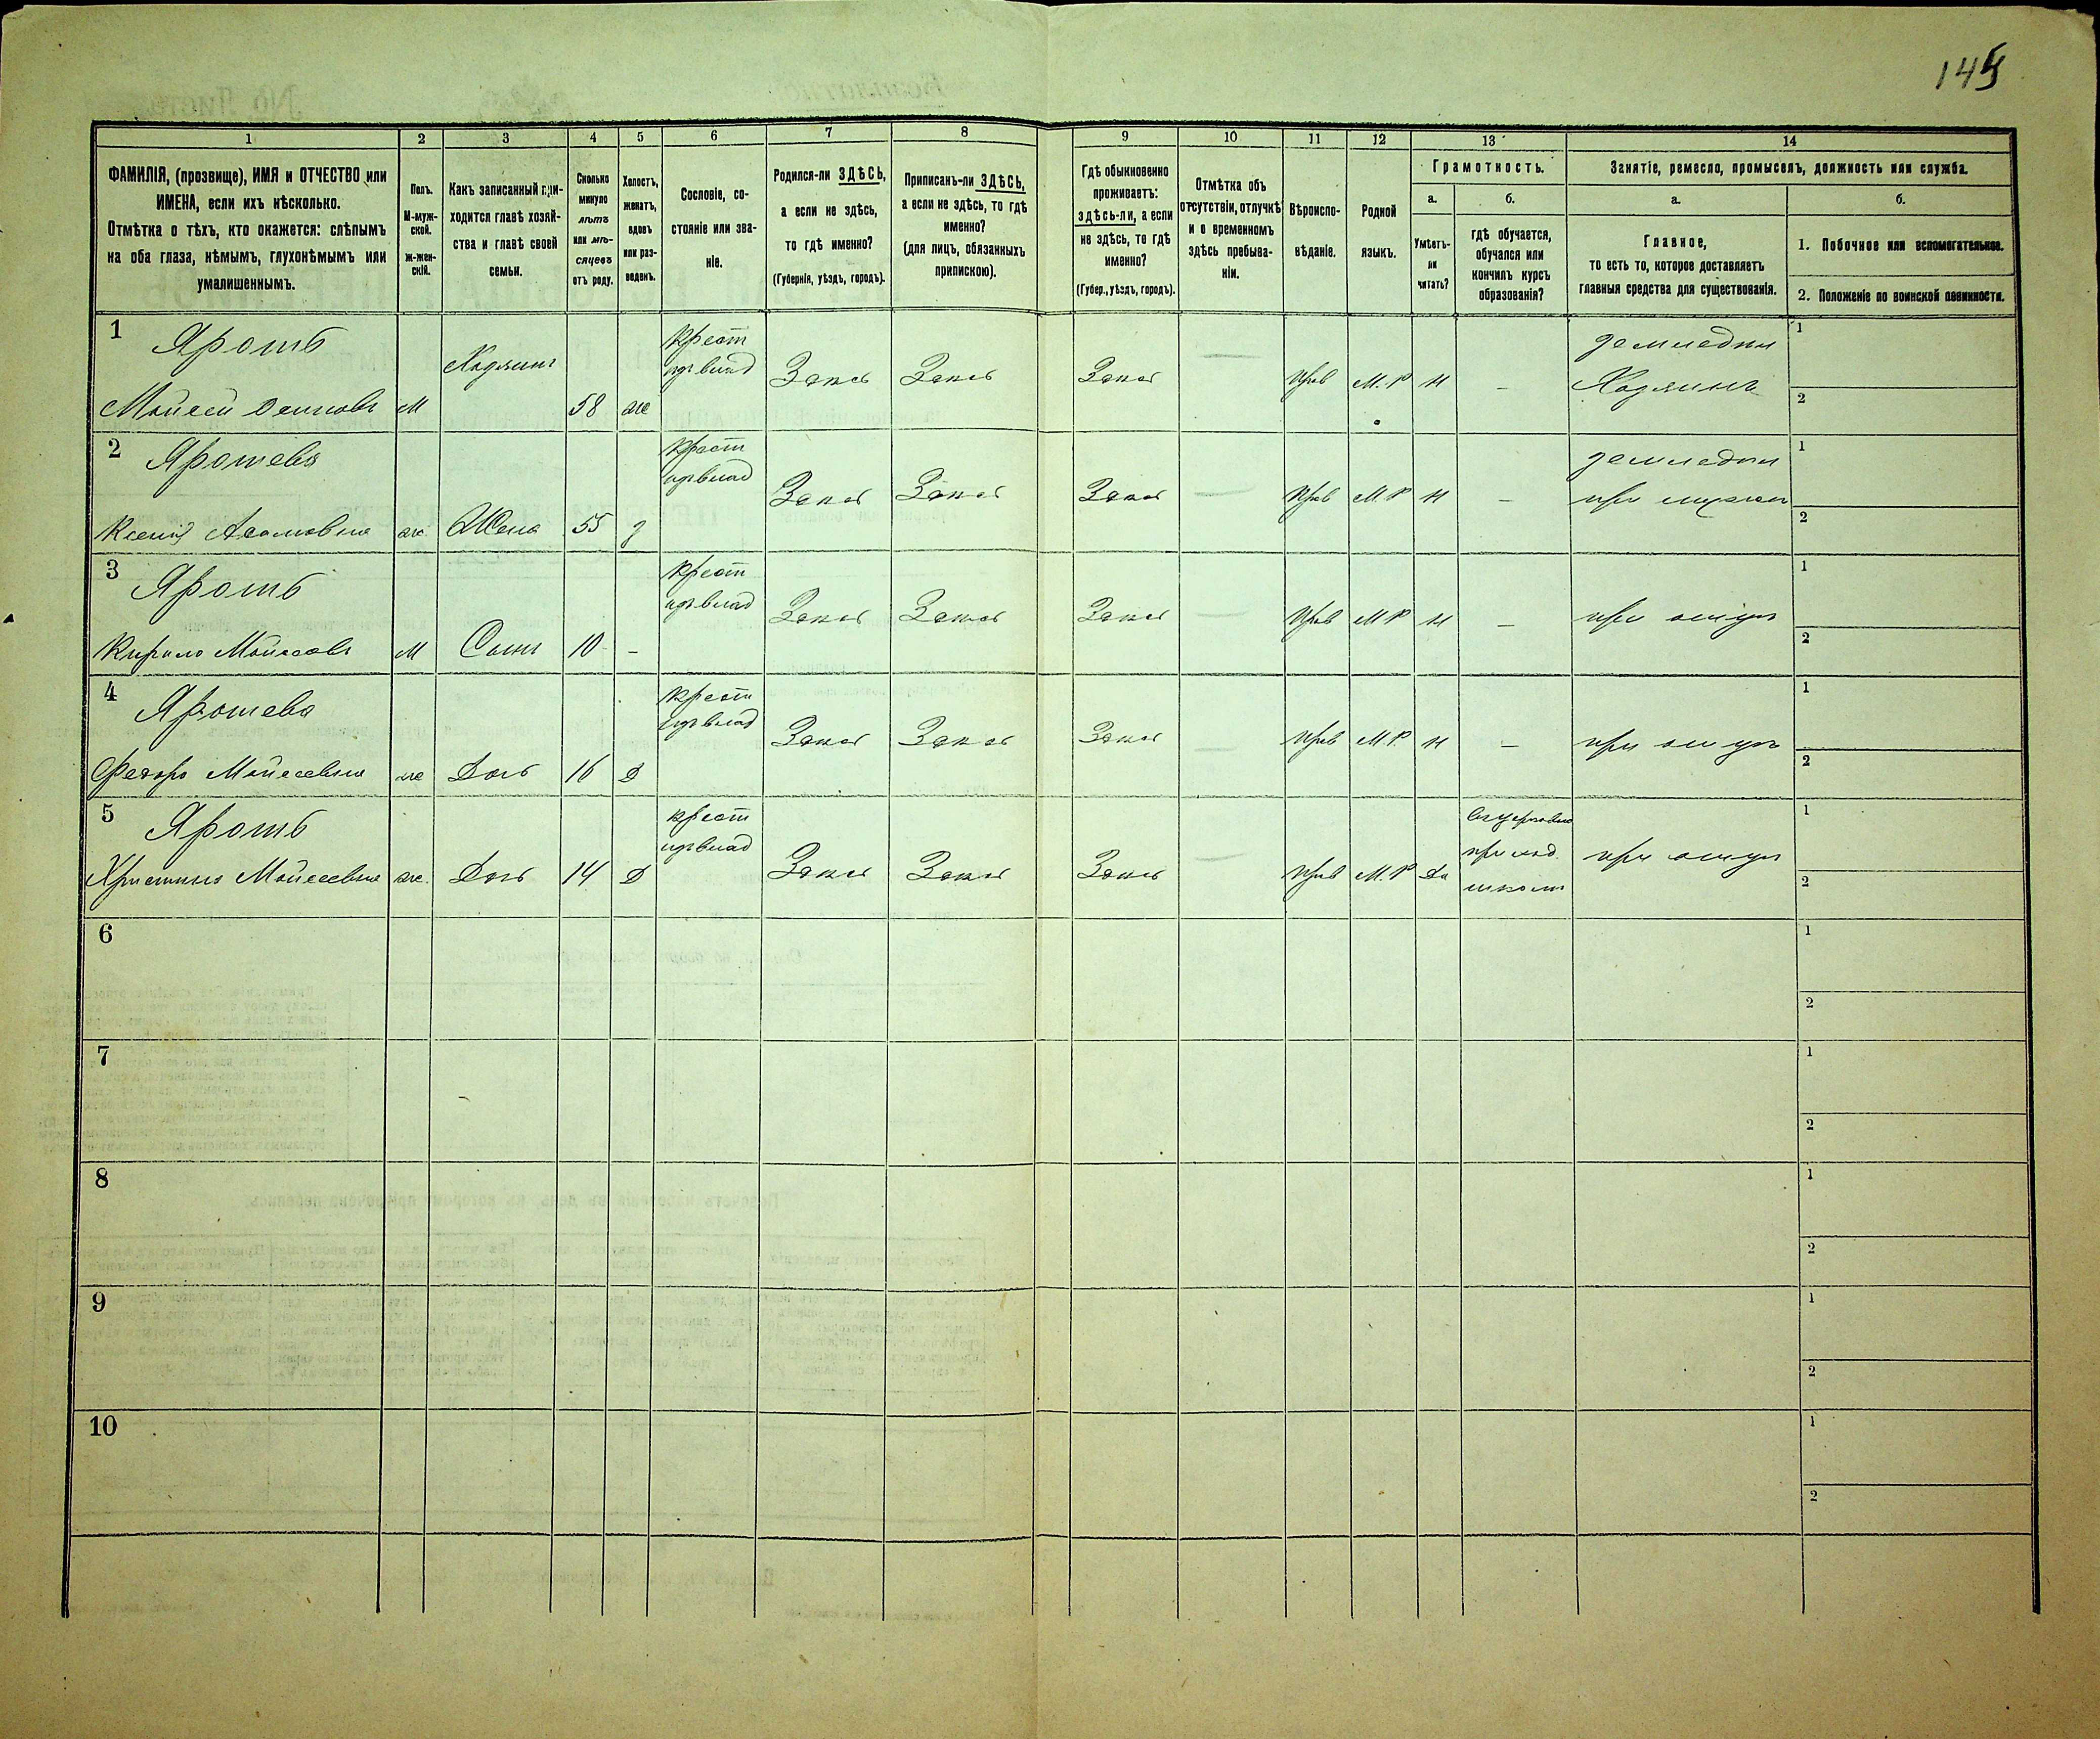 145
1
2
3
4
5
6
7
8
9
10
11
12
13
14
ФАМИЛІЯ, (прозвище), ИМЯ и ОТЧЕСТВО или
ИМЕНА, если ихъ нѣсколько.
Отмѣтка о тѣхъ, кто окажется: слѣпымъ
на оба глаза, нѣмымъ, глухонѣмымъ или
умалишеннымъ.
Полъ.
М-муж-
ской.
ж-жен-
скій.
Какъ записанный при-
ходится главѣ хозяй-
ства и главѣ своей
семьи.
Сколько
минуло
лѣтъ
или мѣ-
сяцевъ
отъ роду.
Холостъ,
женатъ,
вдовъ
или раз-
веденъ.
Сословіе, со-
стояніе или зва-
ніе.
Родился-ли ЗДѢСЬ,
а если не здѣсь,
то гдѣ именно?
(Губернія, уѣздъ, городъ).
Приписанъ-ли ЗДѢСЬ,
а если не здѣсь, то гдѣ
именно?
(для лицъ, обязанныхъ
припискою).
Гдѣ обыкновенно
проживаетъ:
здѣсь-ли, а если
не здѣсь, то гдѣ
именно?
(Губер., уѣздъ, городъ).
Отмѣтка объ
отсутствіи, отлучкѣ
и о временномъ
здѣсь пребыва-
ніи.
Вѣроиспо-
вѣданіе.
Родной
языкъ.
Грамотность.
а.
Умѣетъ-
ли
читать?
б.
гдѣ обучается,
обучался или
кончилъ курсъ
образованія?
Занятіе, ремесло, промыселъ, должность или служба.
а.
Главное,
то есть то, которое доставляетъ
главныя средства для существованія.
б.
1. Побочное или вспомогательное.
2. Положеніе по воинской повинности.
1
Ярошь
Мойсей
М
Хозяинъ
58
ж
крест
Здѣсь
Здѣсь
Здѣсь
—
Прав
М.Р
Н
—
Хозяинъ
1
2
2
Ярошева
Ксенія
ж
Жена
55
з
крест
Здѣсь
Здѣсь
Здѣсь
—
Прав
М.Р
Н
—
при мужѣ
1
2
3
Ярошь
Кирило Мойсеовъ
М
Сынъ
10
-
крест
Здѣсь
Здѣсь
Здѣсь
—
Прав
М.Р
Н
—
при отцѣ
1
2
4
Ярошева
Мойсеевна
ж
Дочь
16
Д
крест
Здѣсь
Здѣсь
Здѣсь
—
Прав
М.Р.
Н
—
при отцѣ
1
2
5
Ярошь
Христина Мойсеевна
ж.
Дочь
14
Д
крест
Здѣсь
Здѣсь
Здѣсь
—
Прав
М.Р
Да
приход.
школѣ
при отцѣ
1
2
6
1
2
7
1
2
8
1
2
9
1
2
10
1
2